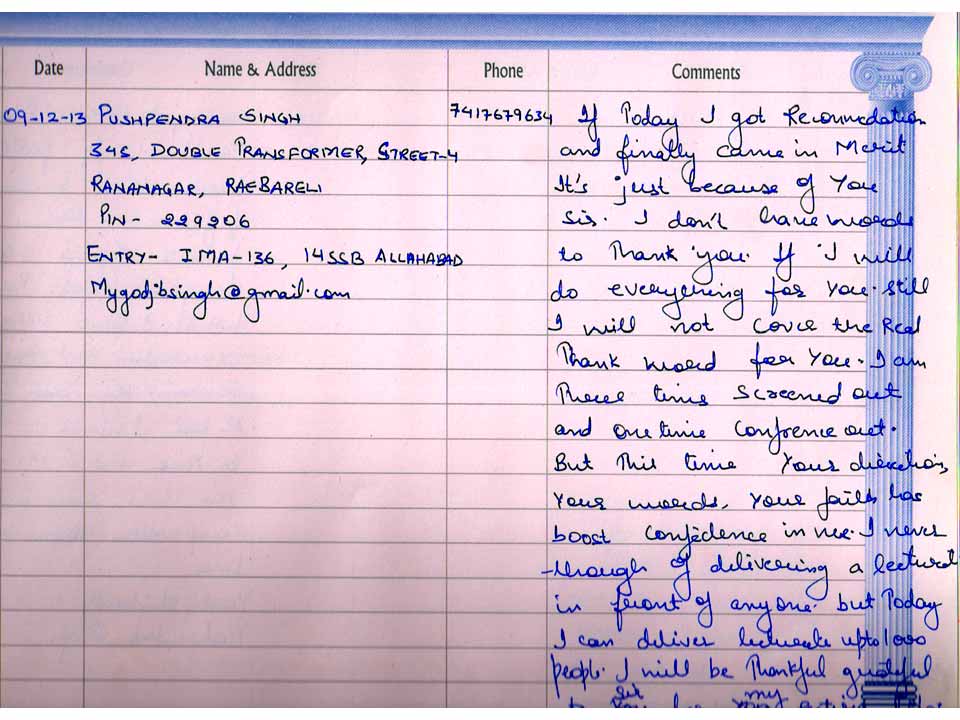 Date Name & Address Phone Comments
09-12-13 PUSHPENDRA SINGH 7417679634 If Today I got Recommedation
345, DOUBLE TRANSFORMER, STREET-4 and finally came in Merit
RANANAGAR, RAEBARELI It's just because of You
PIN- 229206 Sir. I don't have words
ENTRY- IMA-136, 14SSB ALLAHABAD to Thank you. If I will
Mygodjbsingh@gmail.com do everyening for You. still
I will not cover the Real
Thank word for You. I am
Three time Screened out
and one time Confrence out.
But This time Your direction,
Your words, Your faith has
boost Confidence in me. I never
through of delivering a lecturet
in front of anyone but Today
I can deliver lecturate upto 1000
people. I will be Thankful grateful
to You Sir for my